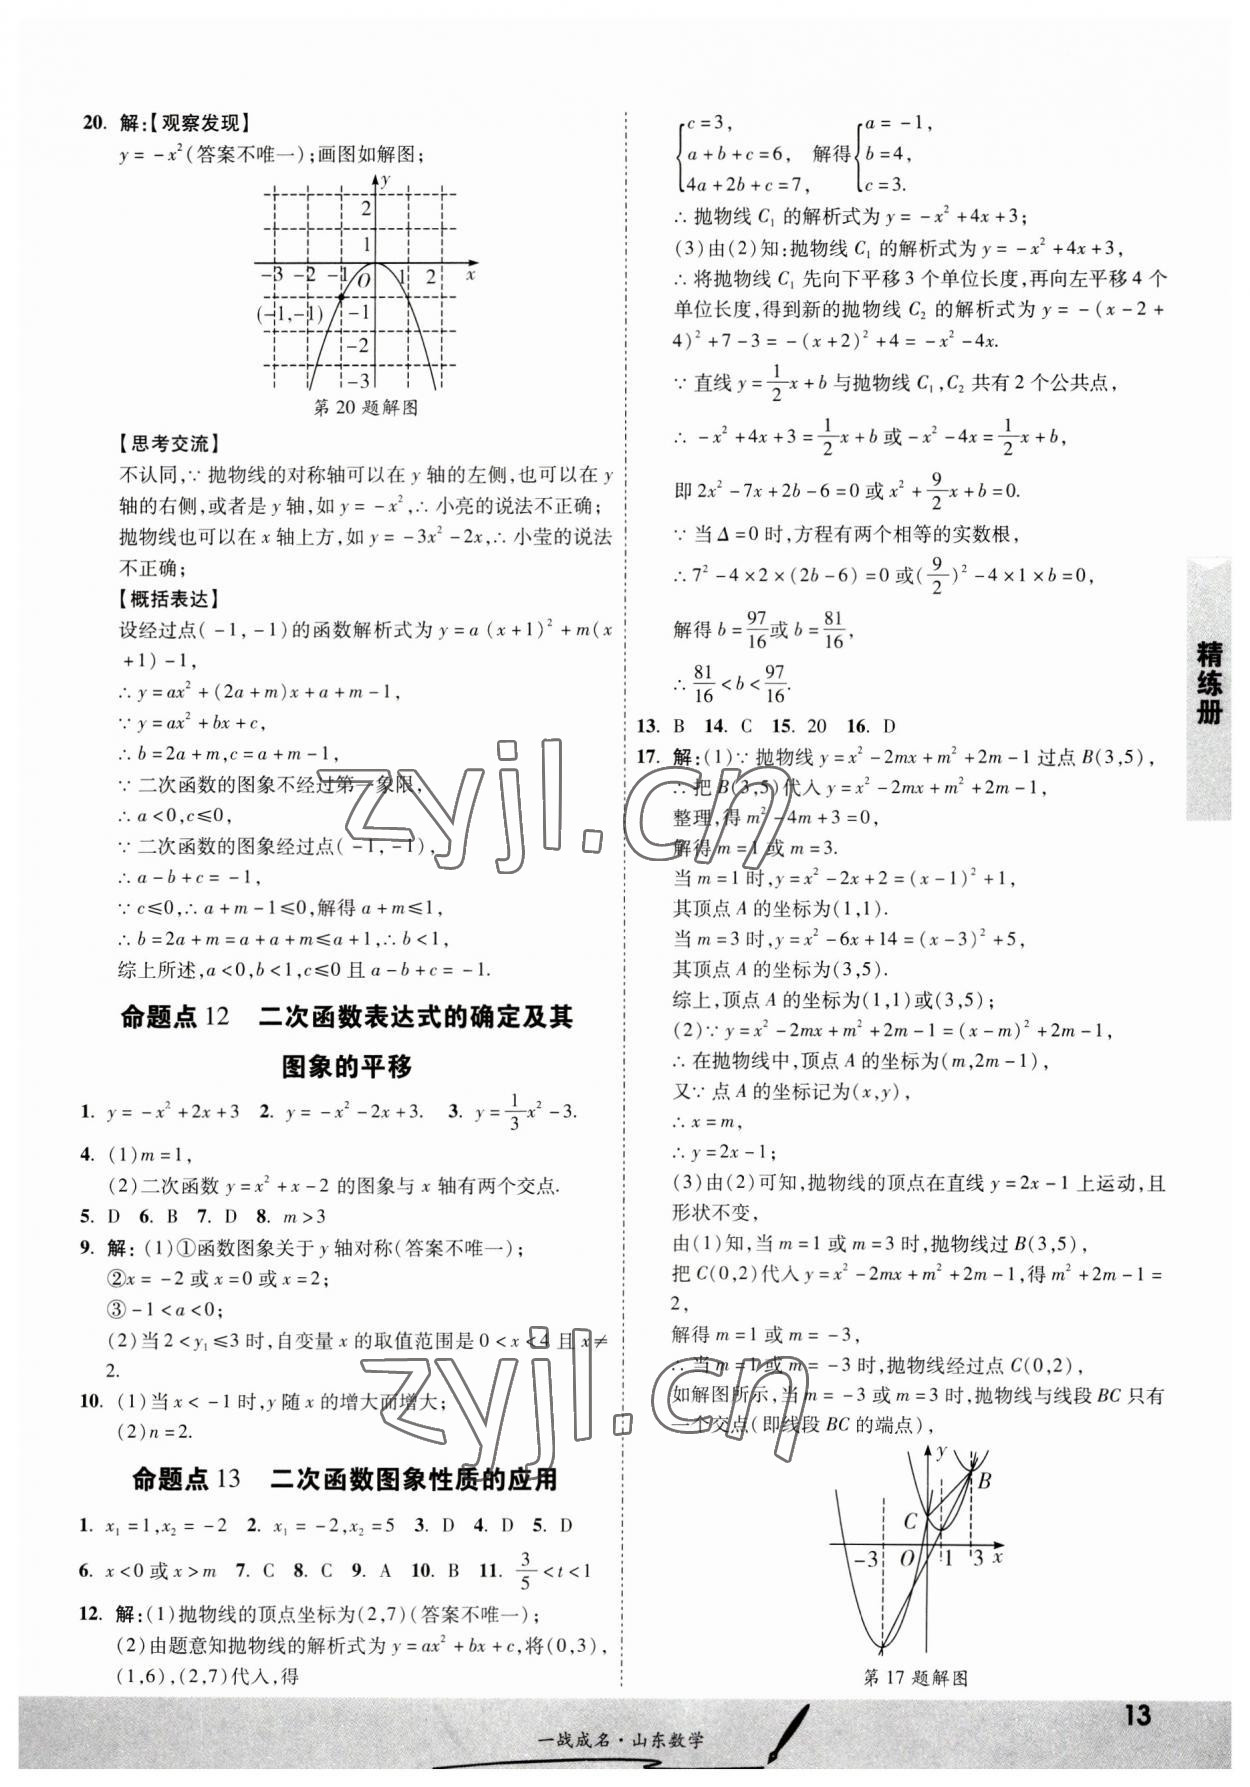 20. 解:【观察发现】
y=-x²(答案不唯一);画图如解图;
y
2
1
-3 -2 -1 O 1 2 x
(-1,-1) -1
-2
-3
第 20 题解图
【思考交流】
不认同,∵ 抛物线的对称轴可以在 y 轴的左侧,也可以在 y
轴的右侧,或者是 y 轴,如 y=-x²,∴ 小亮的说法不正确;
抛物线也可以在 x 轴上方,如 y=-3x²-2x,∴ 小莹的说法
不正确;
【概括表达】
设经过点(-1,-1)的函数解析式为 y=a(x+1)²+m(x
+1)-1,
∴ y=ax²+(2a+m)x+a+m-1,
∵ y=ax²+bx+c,
∴ b=2a+m,c=a+m-1,
∵ 二次函数的图象不经过第一象限,
∴ a<0,c≤0,
∵ 二次函数的图象经过点(-1,-1),
∴ a-b+c=-1,
∵ c≤0,∴ a+m-1≤0,解得 a+m≤1,
∴ b=2a+m=a+a+m≤a+1,∴ b<1,
综上所述,a<0,b<1,c≤0 且 a-b+c=-1.
命题点 12 二次函数表达式的确定及其
图象的平移
1. y=-x²+2x+3 2. y=-x²-2x+3. 3. y=1/3x²-3.
4. (1)m=1,
(2)二次函数 y=x²+x-2 的图象与 x 轴有两个交点.
5. D 6. B 7. D 8. m>3
9. 解:(1)①函数图象关于 y 轴对称(答案不唯一);
②x=-2 或 x=0 或 x=2;
③-1<a<0;
(2)当 2<y₁≤3 时,自变量 x 的取值范围是 0<x<4 且 x≠
2.
10. (1)当 x<-1 时,y 随 x 的增大而增大;
(2)n=2.
命题点 13 二次函数图象性质的应用
1. x₁=1,x₂=-2 2. x₁=-2,x₂=5 3. D 4. D 5. D
6. x<0 或 x>m 7. C 8. C 9. A 10. B 11. 3/5<t<1
12. 解:(1)抛物线的顶点坐标为(2,7)(答案不唯一);
(2)由题意知抛物线的解析式为 y=ax²+bx+c,将(0,3),
(1,6),(2,7)代入,得
{c=3, a+b+c=6, 4a+2b+c=7, 解得{a=-1, b=4, c=3.
∴ 抛物线 C₁ 的解析式为 y=-x²+4x+3;
(3)由(2)知:抛物线 C₁ 的解析式为 y=-x²+4x+3,
∴ 将抛物线 C₁ 先向下平移 3 个单位长度,再向左平移 4 个
单位长度,得到新的抛物线 C₂ 的解析式为 y=-(x-2+
4)²+7-3=-(x+2)²+4=-x²-4x.
∵ 直线 y=1/2x+b 与抛物线 C₁,C₂ 共有 2 个公共点,
∴ -x²+4x+3=1/2x+b 或-x²-4x=1/2x+b,
即 2x²-7x+2b-6=0 或 x²+9/2x+b=0.
∵ 当 Δ=0 时,方程有两个相等的实数根,
∴ 7²-4×2×(2b-6)=0 或(9/2)²-4×1×b=0,
解得 b=97/16或 b=81/16,
∴ 81/16<b<97/16.
13. B 14. C 15. 20 16. D
17. 解:(1)∵ 抛物线 y=x²-2mx+m²+2m-1 过点 B(3,5),
∴ 把 B(3,5)代入 y=x²-2mx+m²+2m-1,
整理,得 m²-4m+3=0,
解得 m=1 或 m=3.
当 m=1 时,y=x²-2x+2=(x-1)²+1,
其顶点 A 的坐标为(1,1).
当 m=3 时,y=x²-6x+14=(x-3)²+5,
其顶点 A 的坐标为(3,5).
综上,顶点 A 的坐标为(1,1)或(3,5);
(2)∵ y=x²-2mx+m²+2m-1=(x-m)²+2m-1,
∴ 在抛物线中,顶点 A 的坐标为(m,2m-1),
又∵ 点 A 的坐标记为(x,y),
∴ x=m,
∴ y=2x-1;
(3)由(2)可知,抛物线的顶点在直线 y=2x-1 上运动,且
形状不变,
由(1)知,当 m=1 或 m=3 时,抛物线过 B(3,5),
把 C(0,2)代入 y=x²-2mx+m²+2m-1,得 m²+2m-1=
2,
解得 m=1 或 m=-3,
∴ 当 m=1 或 m=-3 时,抛物线经过点 C(0,2),
如解图所示,当 m=-3 或 m=3 时,抛物线与线段 BC 只有
一个交点(即线段 BC 的端点),
y
B
C
-3 O 1 3 x
第 17 题解图
精练册
zyjl.cn
zyjl.cn
一战成名·山东数学
13